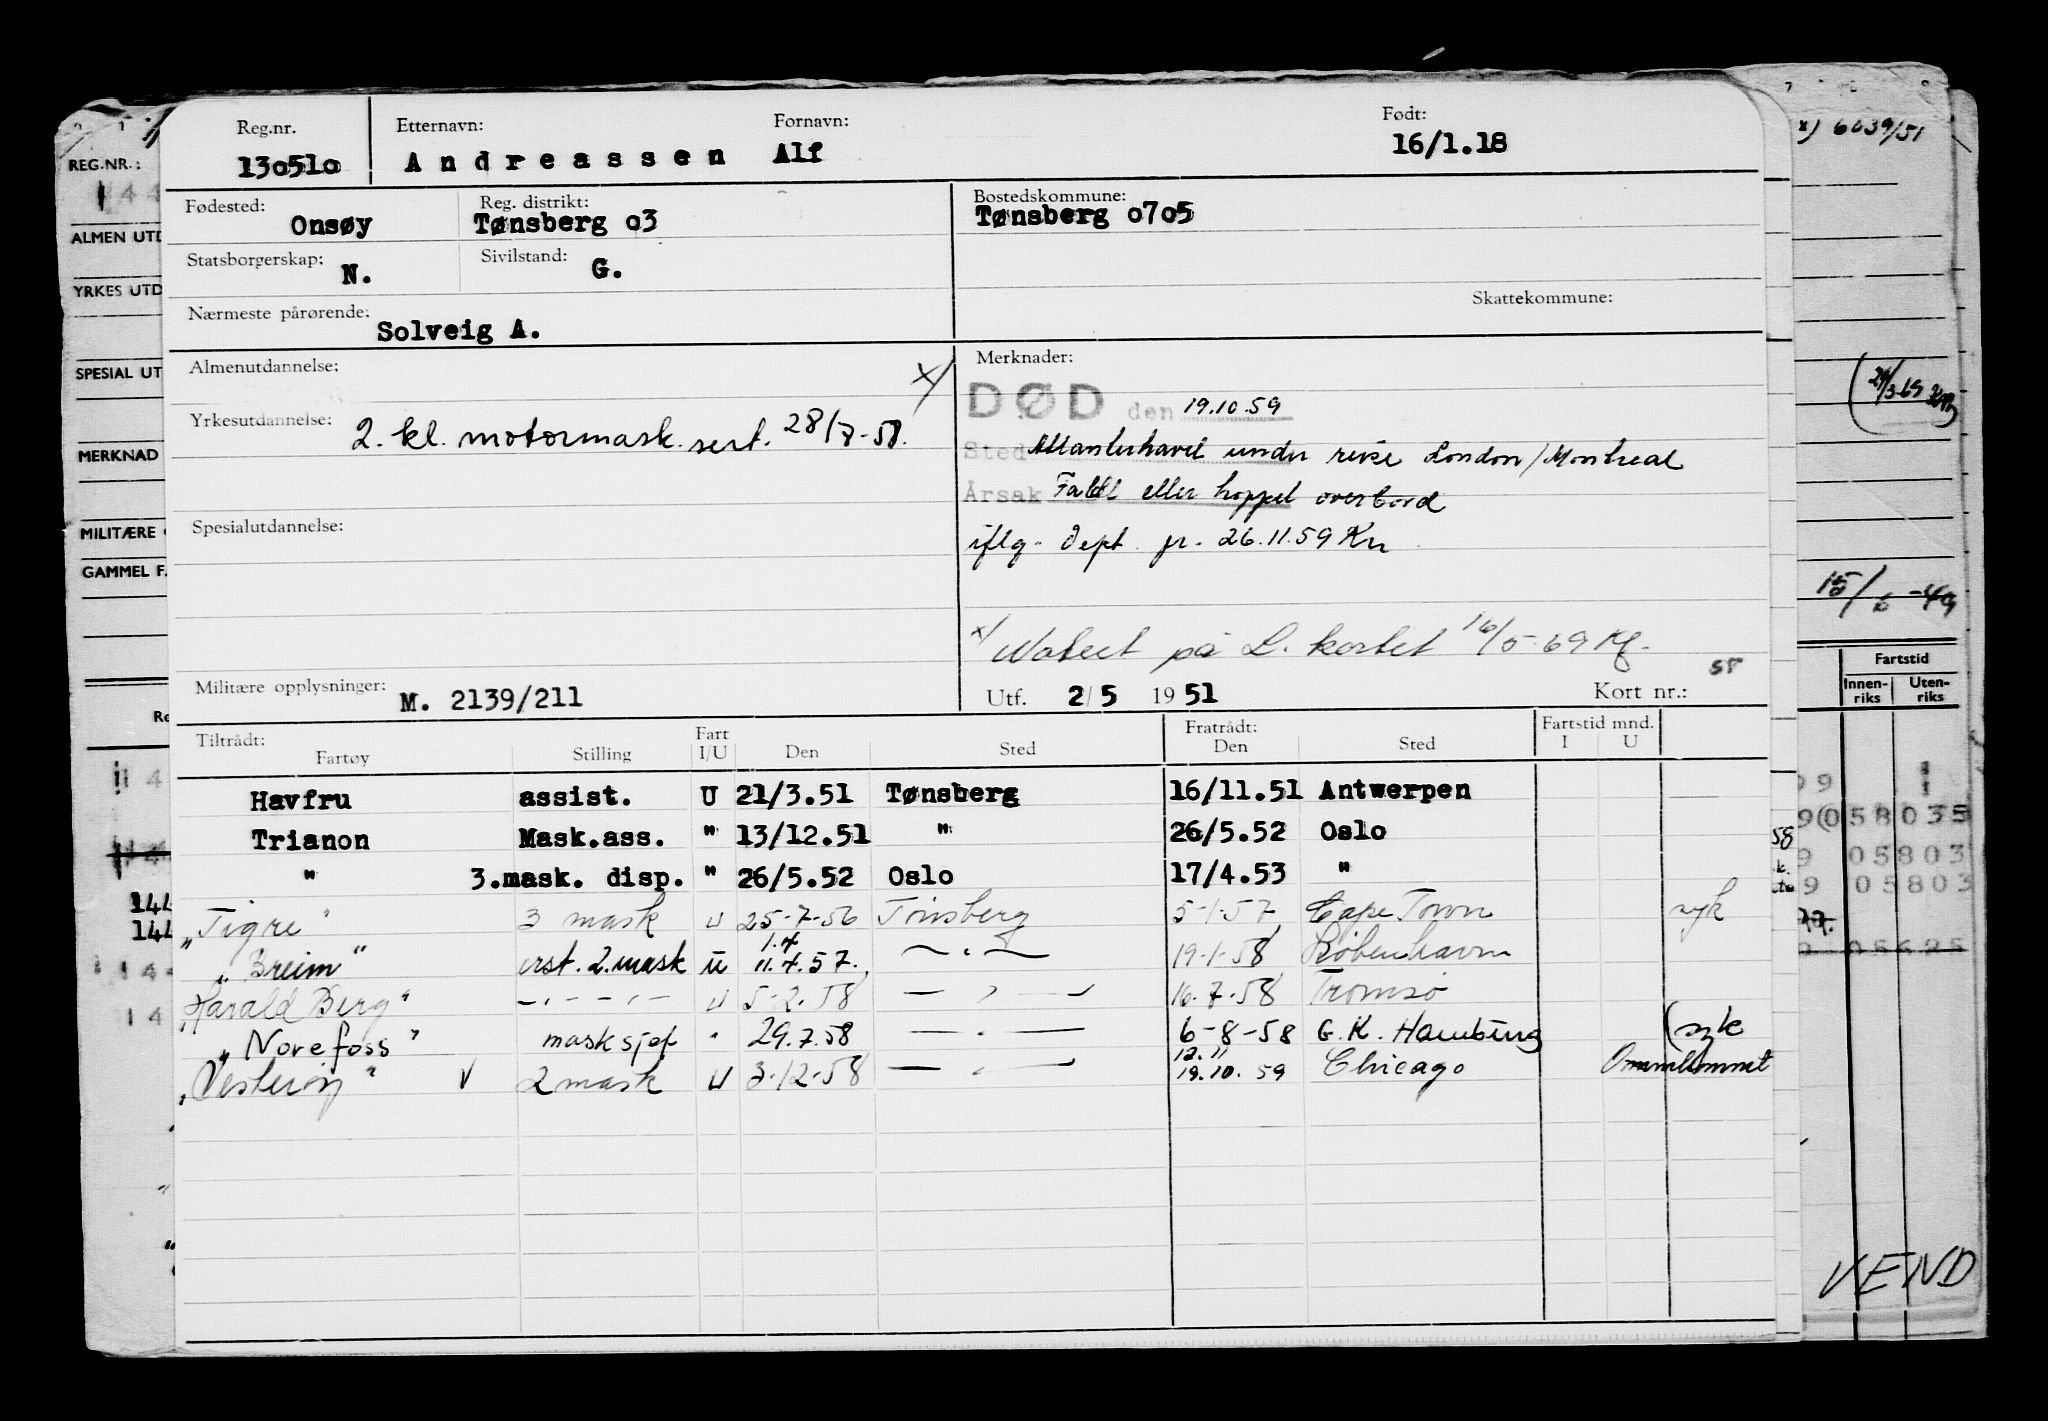 Reg.nr. Etternavn: Fornavn: Født:
130510 Andreassen Alf 16/1.18
Fødested: Onsøy Reg. distrikt: Tønsberg 03 Bostedskommune: Tønsberg 0705
Statsborgerskap: N. Sivilstand: G.
Skattekommune:
Nærmeste pårørende: Solveig A.
Almenutdannelse: x/
Yrkesutdannelse: 2. kl. motormask. sert. 28/7-58.
Spesialutdannelse:
Militære opplysninger: M. 2139/211
Merknader:
DØD den 19.10.59
Sted Atlanterhavet under reise London/Montreal
Årsak Falt eller hoppet overbord
iflg. Dept. 26.11.59 Kn
x/ Notert på L. kortet 16/5-69
58
Utf. 2/5 1951 Kort nr.:
Tiltrådt: Fartøy Stilling Fart I/U Den Sted Fratrådt: Den Sted Fartstid mnd. I U
Havfru assist. U 21/3.51 Tønsberg 16/11.51 Antwerpen
Trianon Mask.ass. " 13/12.51 " 26/5.52 Oslo
" 3.mask. disp. " 26/5.52 Oslo 17/4.53 "
"Tigre" 3 mask U 25-7-56 Tønsberg 5-1-57 Cape Town syk
"Breim" erst. 2.mask U 1.7 11.7.57. — " — 19-1-58 København
"Harald Berg" — " — U 5-2-58 — " — 16-7-58 Tromsø
"Norefoss" masksjef " 29.7.58 — " — 6-8-58 G.K. Hamburg (syk
"Vesterøy" V 2 mask U 3-12-58 — " — 12.11 19.10.59 Chicago Omkommet
REG.NR.:
144
ALMEN UTD
YRKES UTD
SPESIAL UT
MERKNAD
MILITÆRE
GAMMEL F.
Re
144
144
x) 6039/51
15/6-49
Fartstid
Innen-riks Uten-riks
058035
05803
05803
VEND